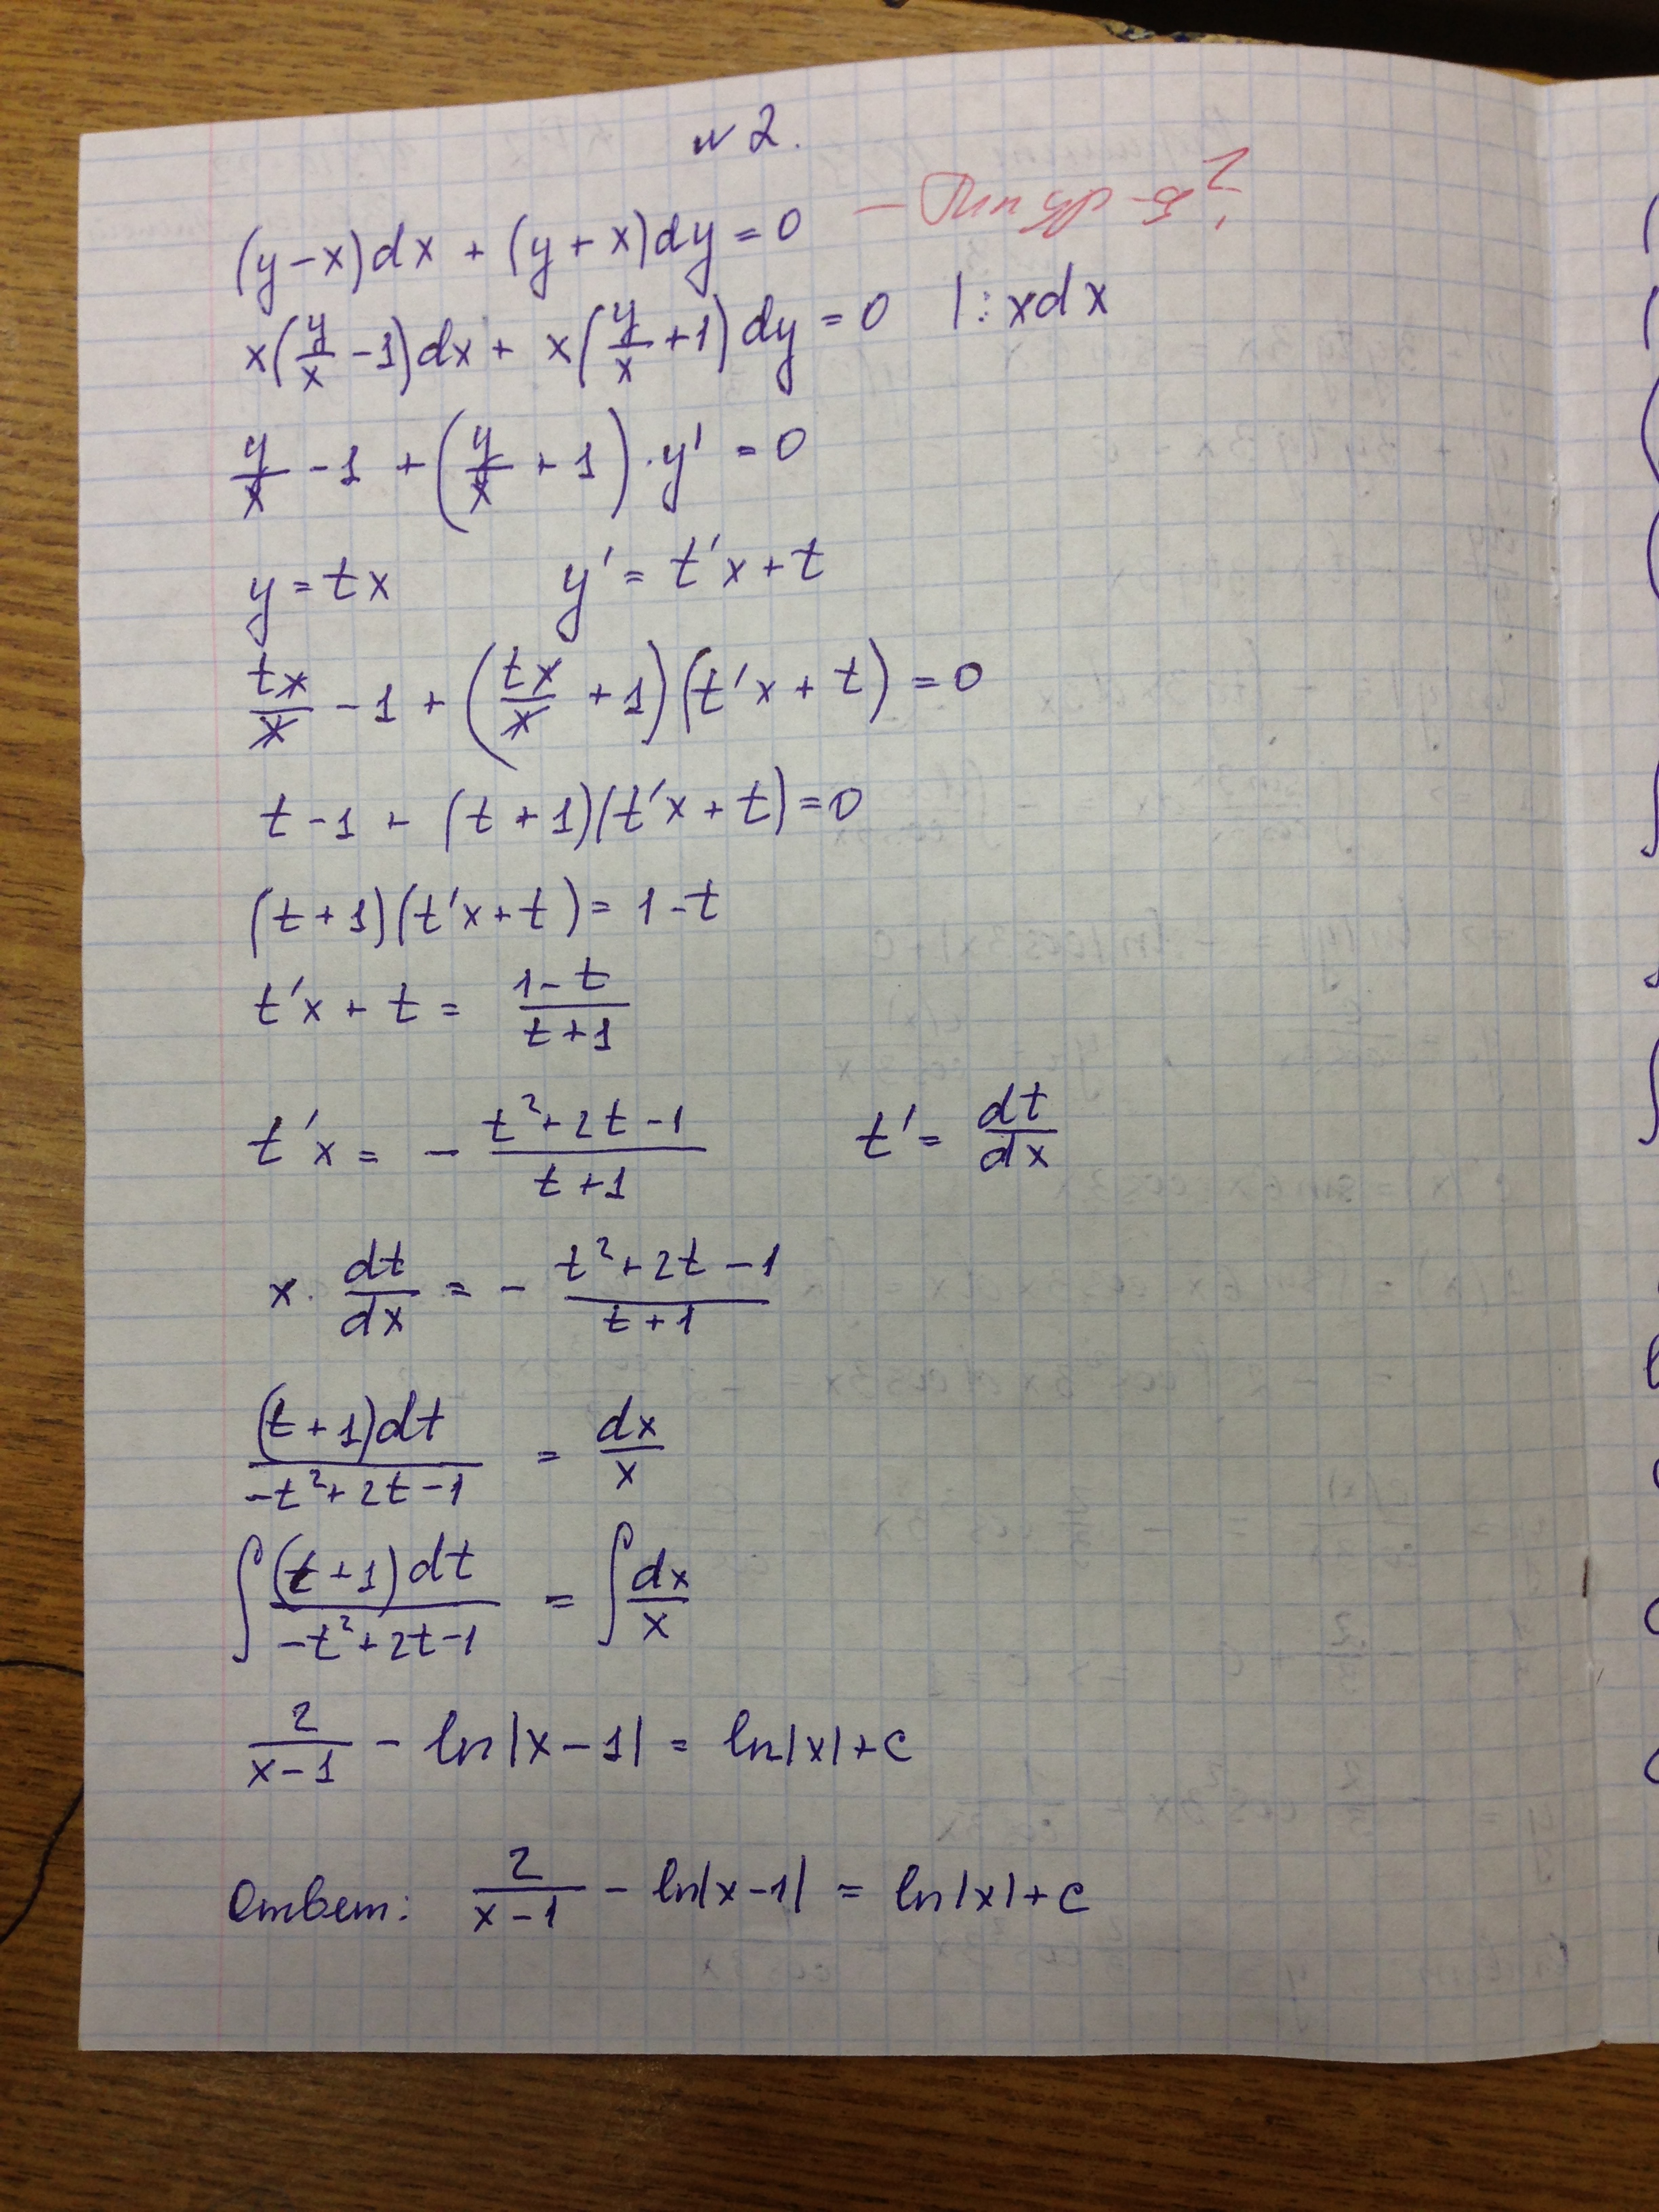 № 2.
(y-x)dx + (y+x)dy = 0
x(y/x - 1)dx + x(y/x + 1)dy = 0 |: xdx
y/x - 1 + (y/x + 1)·y' = 0
y = tx y' = t'x + t
tx/x - 1 + (tx/x + 1)(t'x + t) = 0
t - 1 + (t+1)(t'x + t) = 0
(t+1)(t'x + t) = 1-t
t'x + t = (1-t)/(t+1)
t'x = - (t²+2t-1)/(t+1) t' = dt/dx
x · dt/dx = - (t²+2t-1)/(t+1)
(t+1)dt/(-t²+2t-1) = dx/x
∫ (t+1)dt/(-t²+2t-1) = ∫ dx/x
2/(x-1) - ln|x-1| = ln|x| + c
Ответ: 2/(x-1) - ln|x-1| = ln|x| + c